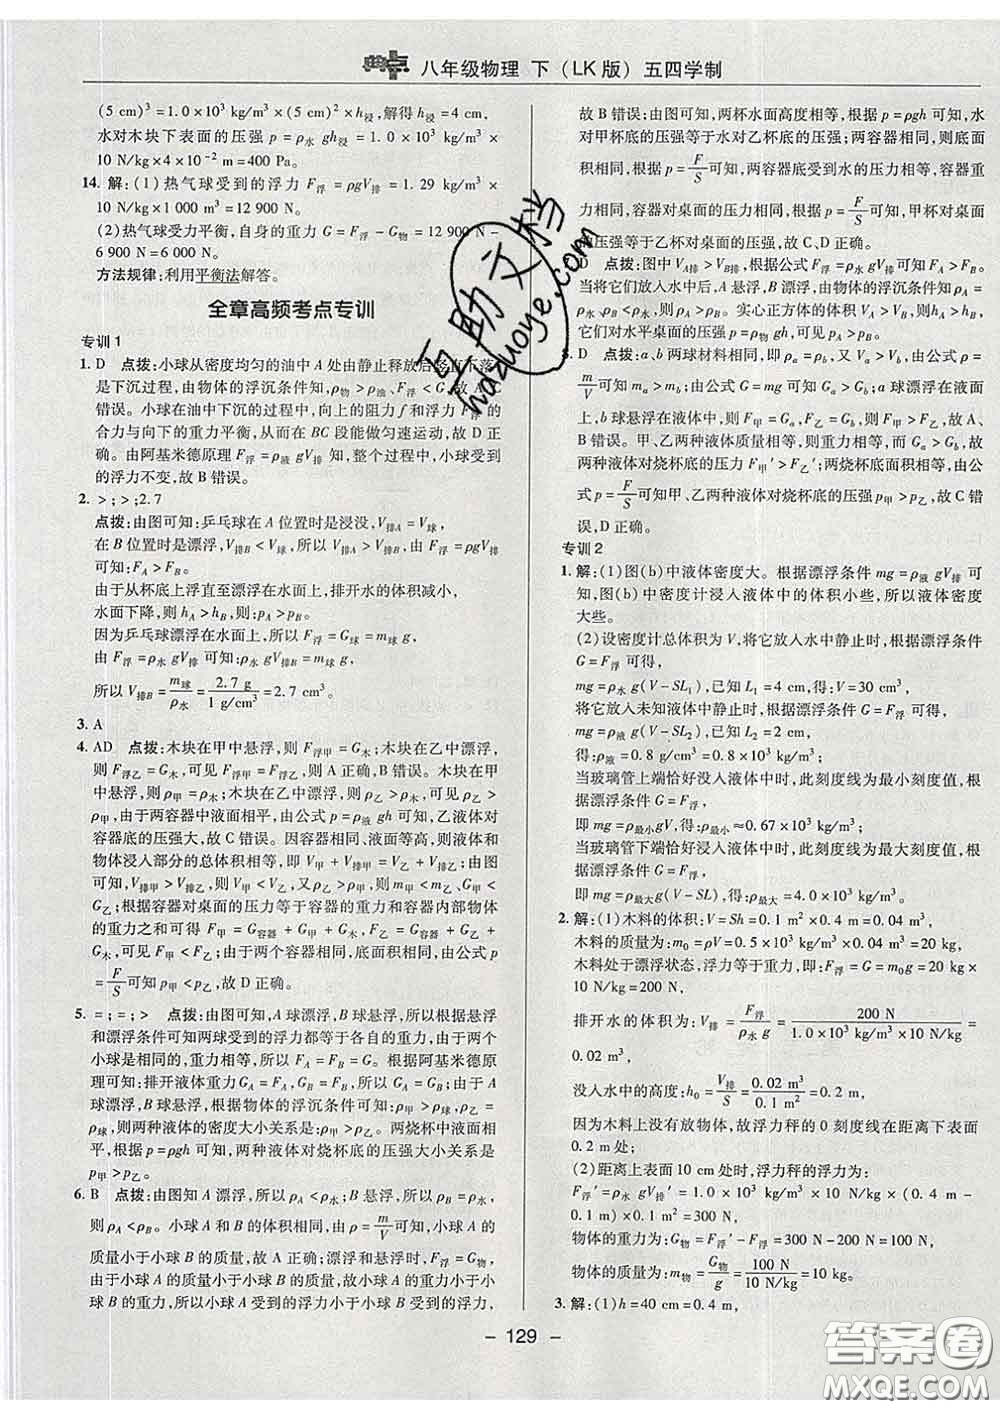 典点 八年级物理 下（LK版） 五四学制
(5 cm)³＝1.0×10³ kg/m³×10 N/kg×h浸,解得 h浸＝4 cm,
水对木块下表面的压强 p＝ρ水 gh浸＝1.0×10³ kg/m³×
10 N/kg×4×10⁻² m＝400 Pa。
14. 解:(1)热气球受到的浮力 F浮＝ρgV排＝1.29 kg/m³×
10 N/kg×1 000 m³＝12 900 N。
(2)热气球受力平衡,自身的重力 G＝F浮－G物＝12 900 N－
6 900 N＝6 000 N。
方法规律:利用平衡法解答。
全章高频考点专训
专训1
1. D 点拨:小球从密度均匀的油中 A 处由静止释放后竖直下落,
是下沉过程,由物体的浮沉条件知,ρ物＞ρ油、F浮＜G,故 A、C
错误。小球在油中下沉的过程中,向上的阻力 f 和浮力 F浮的
合力与向下的重力平衡,从而在 BC 段能做匀速运动,故 D 正
确。由阿基米德原理 F浮＝ρ液 gV排 知,整个过程中,小球受到
的浮力不变,故 B 错误。
2. ＞;＞;2.7
点拨:由图可知:乒乓球在 A 位置时是浸没,V排A＝V球,
在 B 位置时是漂浮,V排B＜V球,所以 V排A＞V排B,由 F浮＝ρgV排
可知:FA＞FB。
由从杯底上浮直至漂浮在水面上,排开水的体积减小,
水面下降,则 hA＞hB,则:pA＞pB。
因为乒乓球漂浮在水面上,所以 F浮＝G球＝m球 g,
由 F浮＝ρ水 gV排 可知:ρ水 gV排B＝m球 g,
所以 V排B＝m球/ρ水＝2.7 g/1 g/cm³＝2.7 cm³。
3. A
4. AD 点拨:木块在甲中悬浮,则 F浮甲＝G木;木块在乙中漂浮,
则 F浮乙＝G木,可见 F浮甲＝F浮乙,则 A 正确,B 错误。木块在甲
中悬浮,则 ρ甲＝ρ木;木块在乙中漂浮,则 ρ乙＞ρ木,所以 ρ乙＞
ρ甲,由于两容器中液面相平,由公式 p＝ρ液 gh 可知,乙液体对
容器底的压强大,故 C 错误。因容器相同、液面等高,则液体和
物体浸入部分的总体积相等,即 V甲＋V排甲＝V乙＋V排乙;由图
可知,V排甲＞V排乙,则 V甲＜V乙,又 ρ甲＜ρ乙,则 m甲＜m乙,G甲＜
G乙;根据容器对桌面的压力等于容器的重力和容器内部物体
的重力之和可得 F甲＝G容器＋G甲＋G木,F乙＝G容器＋G乙＋
G木,可见 F甲＜F乙;由于两个容器相同,底面积相同,由公式 p
＝F/S可知,p甲＜p乙,故 D 正确。
5. ＝;＝;＞ 点拨:由图可知,A 球漂浮,B 球悬浮,所以根据悬浮
和漂浮条件可知两球受到的浮力都等于各自的重力,由于两个
小球是相同的,重力相等,所以 FA＝FB＝G。根据阿基米德原
理可知:排开液体重力 GA＝FA,GB＝FB,所以 GA＝GB。由于 A
球漂浮,B 球悬浮,根据物体的浮沉条件可知:ρ甲＞ρ球,ρ乙＝
ρ球,则两种液体的密度大小关系是:ρ甲＞ρ乙。两烧杯中液面相
平,根据 p＝ρgh 可知,液体对烧杯底的压强大小关系是
p甲＞p乙。
6. B 点拨:由图知 A 漂浮,所以 ρA＜ρ水;B 悬浮,所以 ρB＝ρ水,
则 ρA＜ρB。小球 A 和 B 的体积相同,由 ρ＝m/V可知,小球 A 的
质量小于小球 B 的质量,故 A 正确;漂浮和悬浮时,F浮＝G物,
由于小球 A 的质量小于小球 B 的质量,故小球 A 的重力小于小
球 B 的重力,所以小球 A 受到的浮力小于小球 B 受到的浮力,
故 B 错误;由图可知,两杯水面高度相等,根据 p＝ρgh 可知,水
对甲杯底的压强等于水对乙杯底的压强;两容器相同,则底面
积相同,根据 p＝F/S可知,两容器底受到水的压力相等,容器重
力相同,容器对桌面的压力相同,根据 p＝F/S可知,甲杯对桌面
的压强等于乙杯对桌面的压强,故 C、D 正确。
点拨:图中 VA排＞VB排,根据公式 F浮＝ρ水 gV排 可知 FA＞FB。
当将它们放入水中后,A 悬浮,B 漂浮,由物体的浮沉条件知 ρA＝
ρ水,ρB＜ρ水,则 ρA＞ρB。实心正方体的体积 VA＞VB,所以
它们对水平面的压强由 p＝ρ物 gh 可知,pA＞pB。
D 点拨:a、b 两球材料相同,即 ρa＝ρb,又 Va＞Vb,由公式 ρ＝
m/V可知 ma＞mb;由公式 G＝mg 可知 Ga＞Gb;a 球漂浮在液面
上,b 球悬浮在液体中,则 F甲＝Ga,F乙＝Gb,则 F甲＞F乙,故 A、
B 错误。甲、乙两种液体质量相等,则重力相等,而 Ga＞Gb,故
两种液体对烧杯底的压力 F甲′＞F乙′;两烧杯底面积相等,由公
式 p＝F/S可知甲、乙两种液体对烧杯底的压强 p甲＞p乙,故 C 错
误,D 正确。
专训2
1. 解:(1)图(b)中液体密度大。根据漂浮条件 mg＝ρ液 gV排 可
知,图(b)中密度计浸入液体中的体积小些,所以液体密度
大些。
(2)设密度计总体积为 V,将它放入水中静止时,根据漂浮条件
G＝F浮 可得,
mg＝ρ水 g(V－SL₁),已知 L₁＝4 cm,得:V＝30 cm³,
将它放入未知液体中静止时,根据漂浮条件 G＝F浮 可得,
mg＝ρ液 g(V－SL₂),已知 L₂＝2 cm,
得:ρ液＝0.8 g/cm³＝0.8×10³ kg/m³。
当玻璃管上端恰好没入液体中时,此刻度线为最小刻度值,根
据漂浮条件 G＝F浮,
即 mg＝ρ最小gV,得:ρ最小≈0.67×10³ kg/m³,
当玻璃管下端恰好没入液体中时,此刻度线为最大刻度值,根
据漂浮条件 G＝F浮,
即 mg＝ρ最大g(V－SL),得:ρ最大＝4.0×10³ kg/m³。
2. 解:(1)木料的体积:V＝Sh＝0.1 m²×0.4 m＝0.04 m³,
木料的质量为:m₀＝ρV＝0.5×10³ kg/m³×0.04 m³＝20 kg,
木料处于漂浮状态,浮力等于重力,即:F浮＝G＝m₀g＝20 kg
×10 N/kg＝200 N,
排开水的体积为:V排＝F浮/ρ水 g＝200 N/1.0×10³ kg/m³×10 N/kg＝
0.02 m³,
没入水中的高度:h₀＝V排/S＝0.02 m³/0.1 m²＝0.2 m,
因为木料上没有放物体,故浮力秤的 0 刻度线在距离下表面
0.2 m 处;
(2)距离下表面 10 cm 处时,浮力秤的浮力为:
F浮′＝ρ水 gV排′＝1.0×10³ kg/m³×10 N/kg×(0.4 m－
0.1 m)×0.1 m²＝300 N,
物体的重力为:G物＝F浮′－F浮＝300 N－200 N＝100 N,
物体的质量为:m物＝G物/g＝100 N/10 N/kg＝10 kg。
3. 解:(1)h＝40 cm＝0.4 m,
－ 129 －
互助文档
hdzuoye.com
答案圈
MXQE.COM